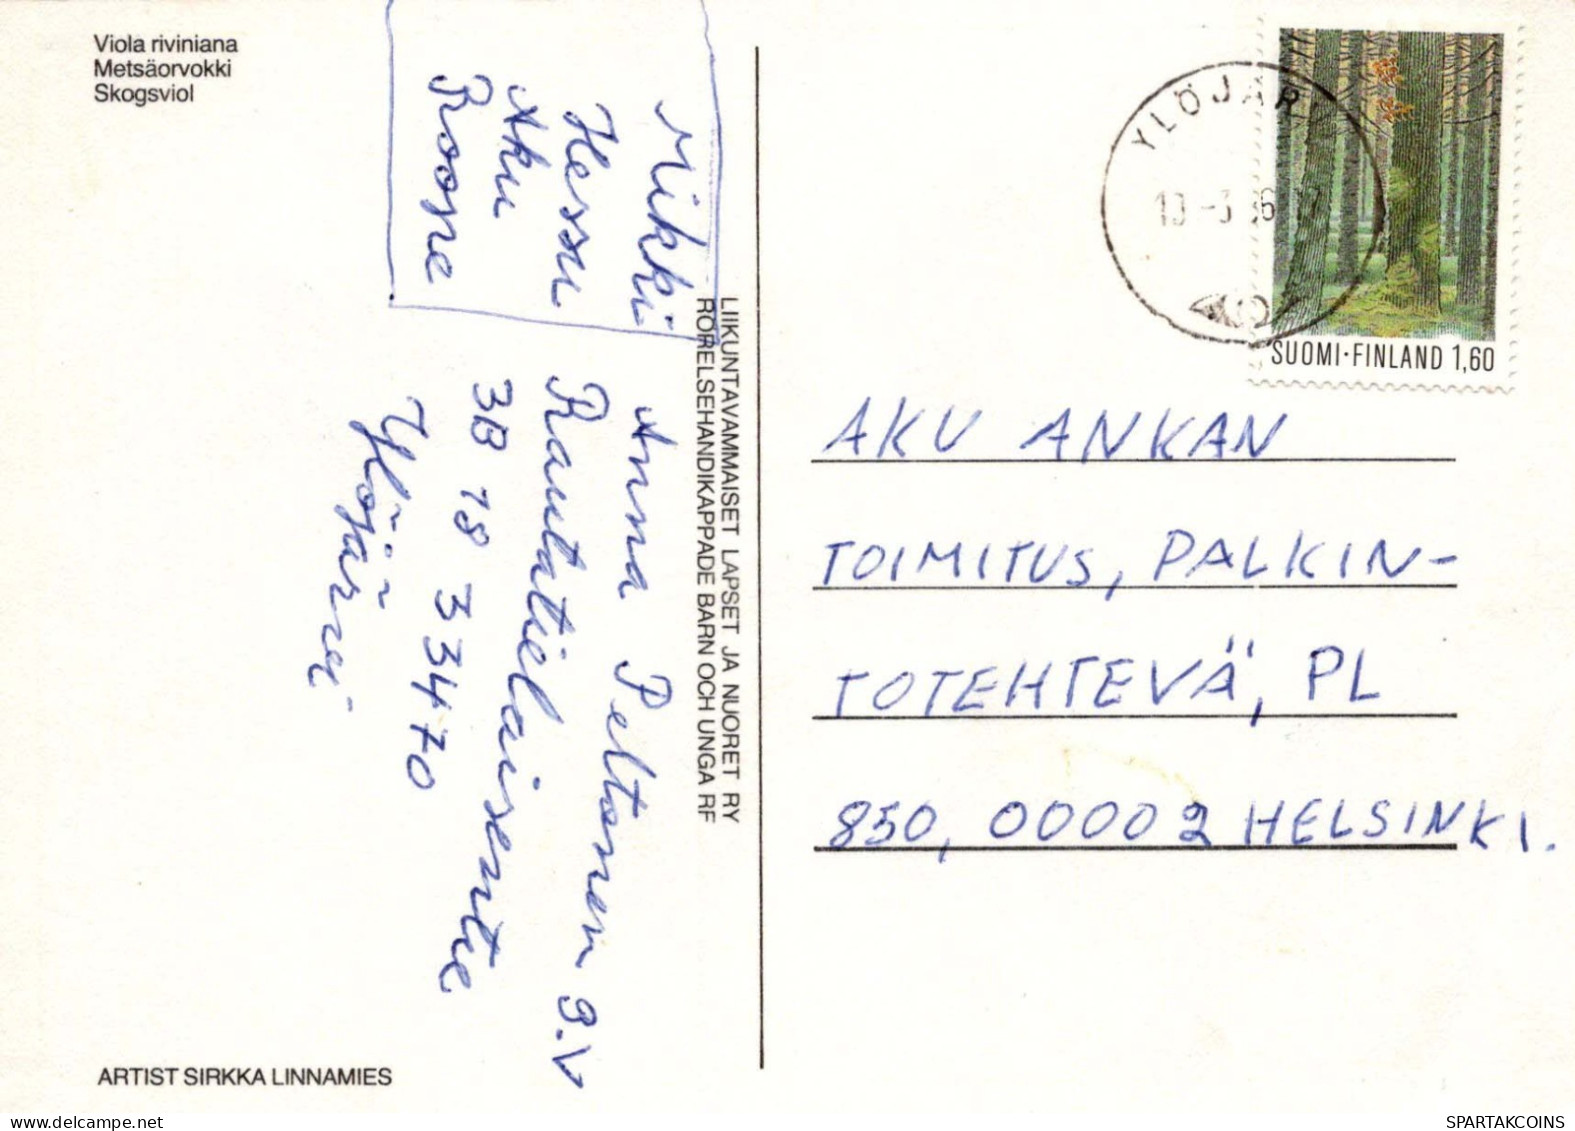 Viola riviniana
Metsäorvokki
Skogsviol
Mikki
Hessu
Aku
Roope
Anna Peltonen 9.V
Rautatieläisentie
3B 18 33470
Ylöjärvi
LIIKUNTAVAMMAISET LAPSET JA NUORET RY
RÖRELSEHANDIKAPPADE BARN OCH UNGA RF
YLÖJÄRVI
SUOMI·FINLAND 1,60
AKU ANKAN
TOIMITUS, PALKIN-
TOTEHTEVÄ, PL
850, 00002 HELSINKI.
ARTIST SIRKKA LINNAMIES
delcampe.net
SPARTAKCOINS